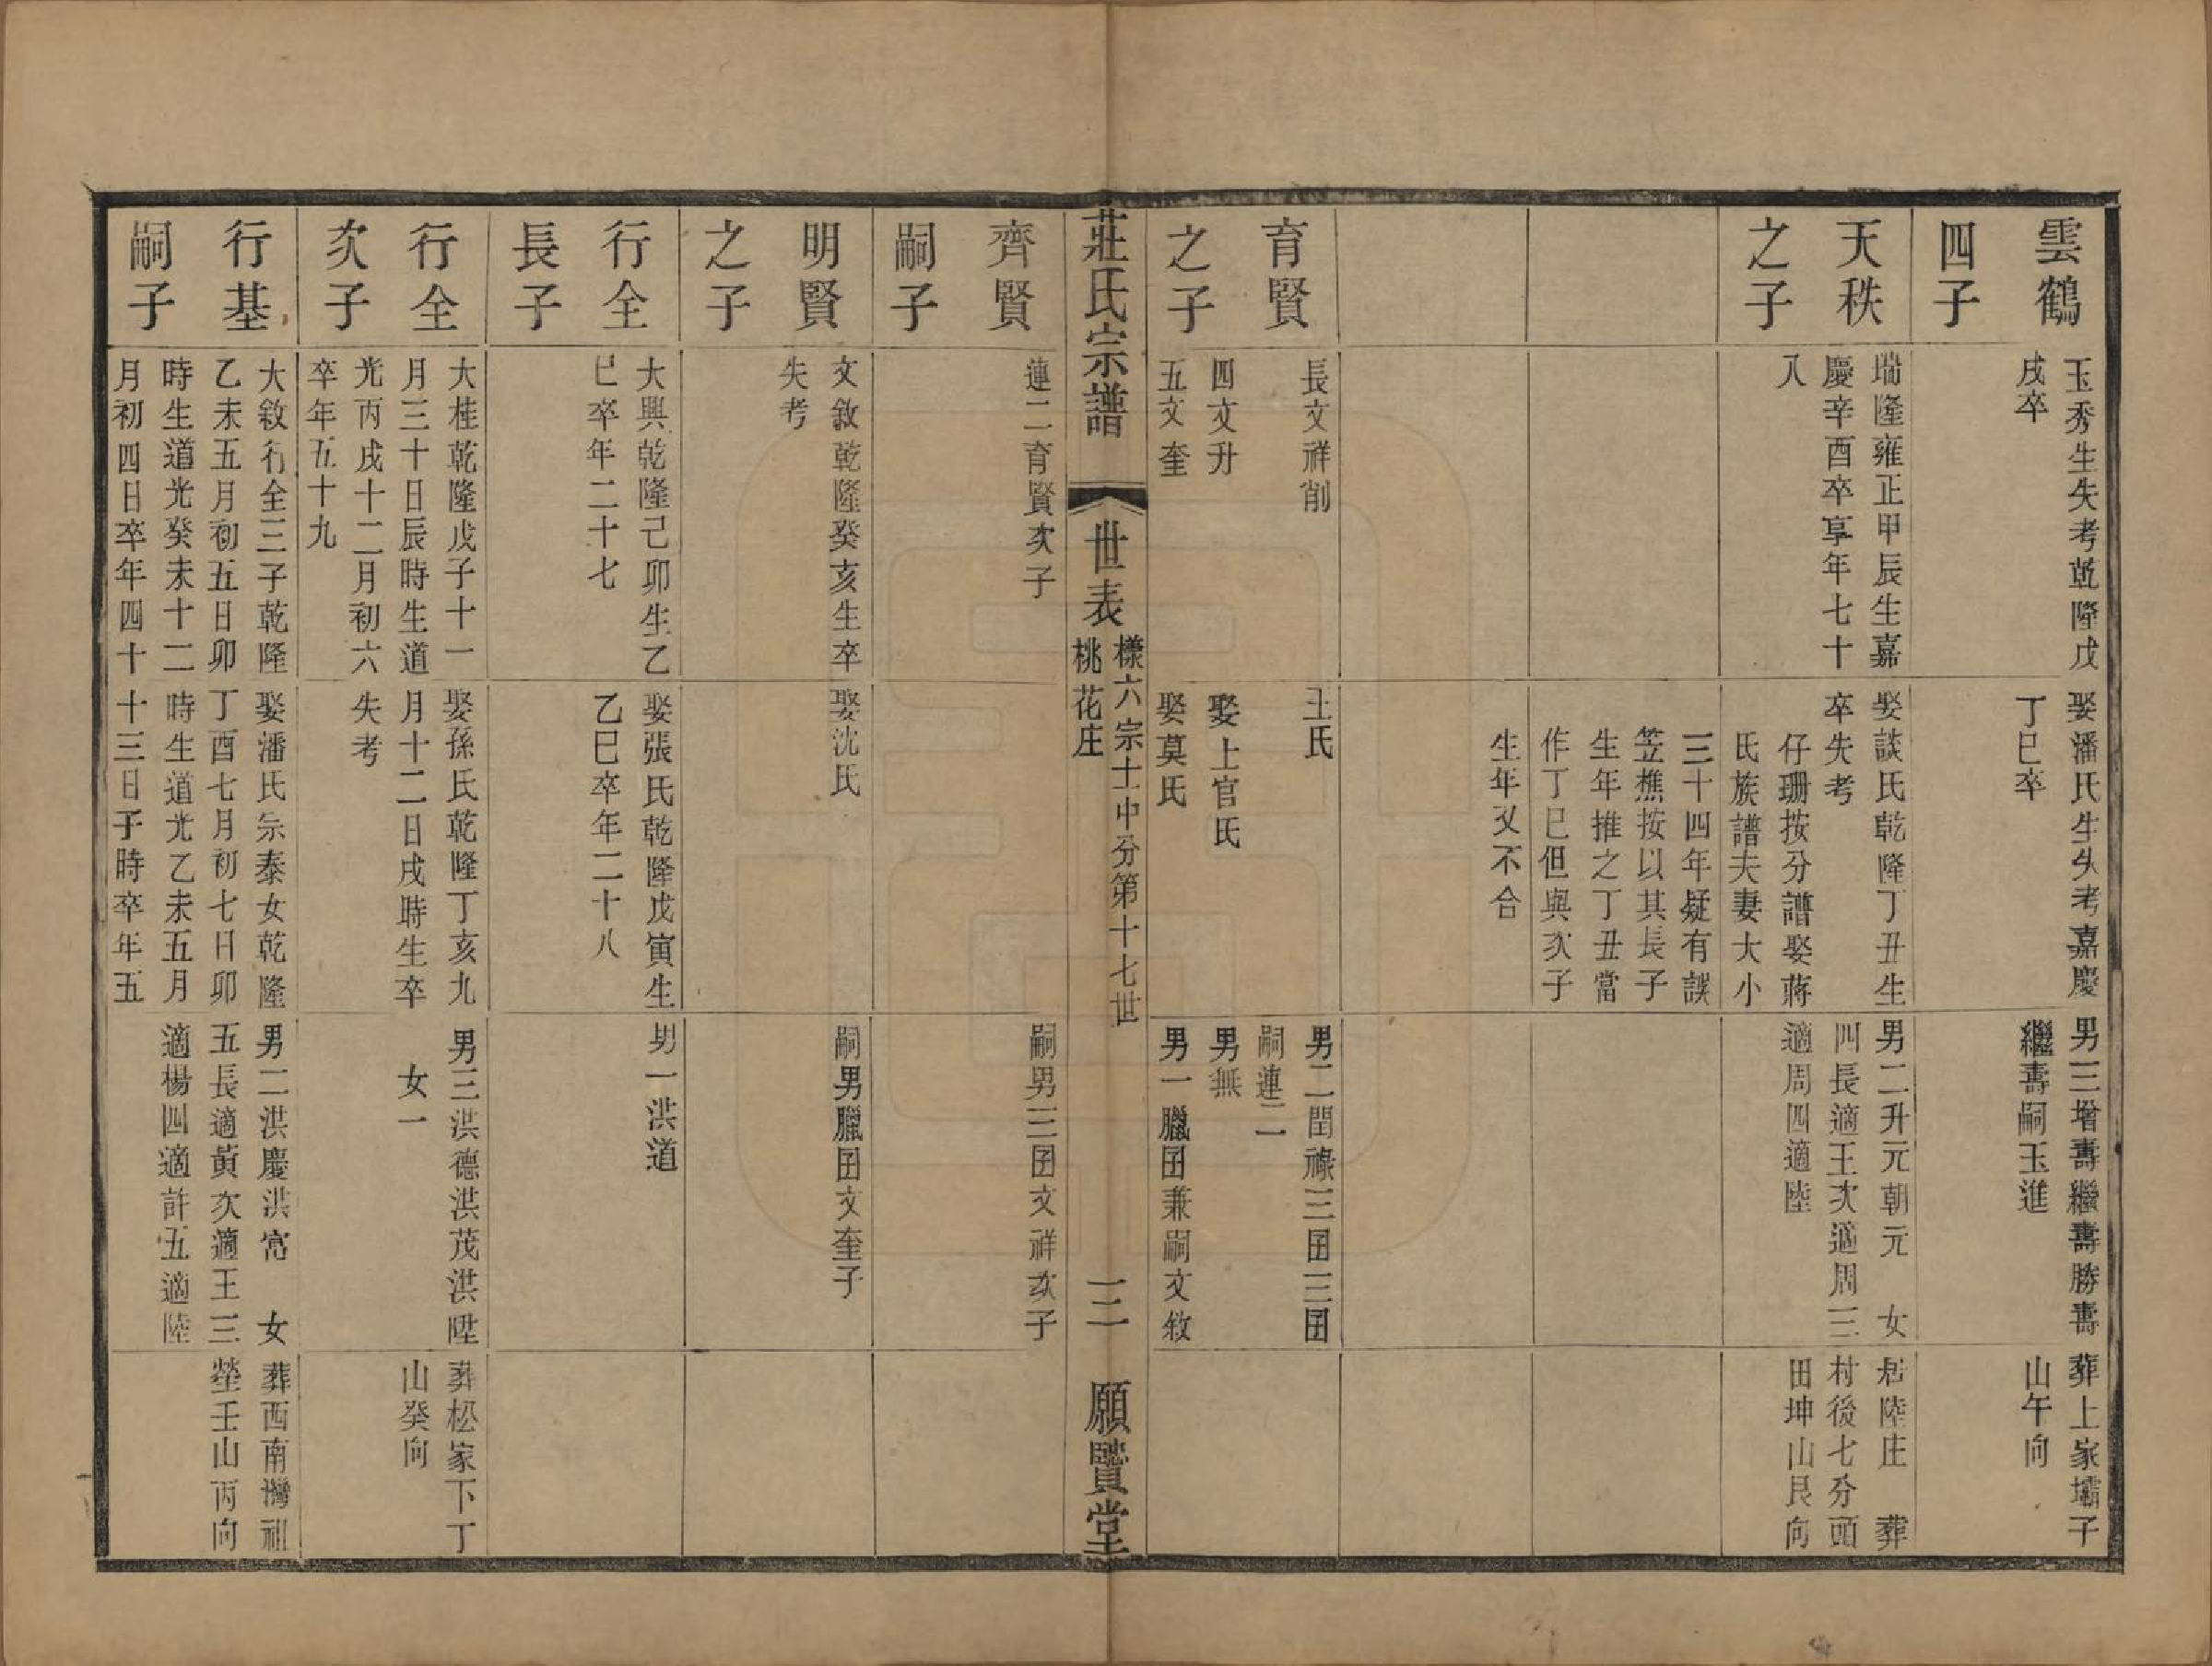 雲鶴
四子
玉秀生失考乾隆戊
戌卒
娶潘氏生失考嘉慶
丁巳卒
男三增壽繼壽勝壽
繼壽嗣玉進
葬上家壩子
山午向
天秩
之子
瑞隆雍正甲辰生嘉
慶辛酉卒享年七十
八
娶談氏乾隆丁丑生
卒失考
仔珊按分譜娶蔣
氏族譜夫妻大小
三十四年疑有誤
笠樵按以其長子
生年推之丁丑當
作丁巳但與次子
生年又不合
男二升元朝元 女
四長適王次適周三
適周四適陸
居陸庄 葬
村後七分頭
田坤山艮向
育賢
之子
長文祥削
四文升
五文奎
王氏
娶上官氏
娶莫氏
男二閏祿三囝三囝
嗣連二
男無
男一臘囝兼嗣文敘
莊氏宗譜
世表
樣六宗士中分第十七世
桃花庄
三二
願賢堂
齊賢
嗣子
連二育賢次子
嗣男三囝文祥次子
明賢
之子
文敘乾隆癸亥生卒
失考
娶沈氏
嗣男臘囝文奎子
行全
長子
大興乾隆己卯生乙
巳卒年二十七
娶張氏乾隆戊寅生
乙巳卒年二十八
男一洪道
行全
次子
大桂乾隆戊子十一
月三十日辰時生道
光丙戌十二月初六
卒年五十九
娶孫氏乾隆丁亥九
月十二日戌時生卒
失考
男三洪德洪茂洪陞
女一
葬松家下丁
山癸向
行基
嗣子
大敘行全三子乾隆
乙未五月初五日卯
時生道光癸未十二
月初四日卒年四十
娶潘氏宗泰女乾隆
丁酉七月初七日卯
時生道光乙未五月
十三日子時卒年五
男二洪慶洪富 女
五長適黃次適王三
適楊四適許五適陸
葬西南灣祖
塋壬山丙向